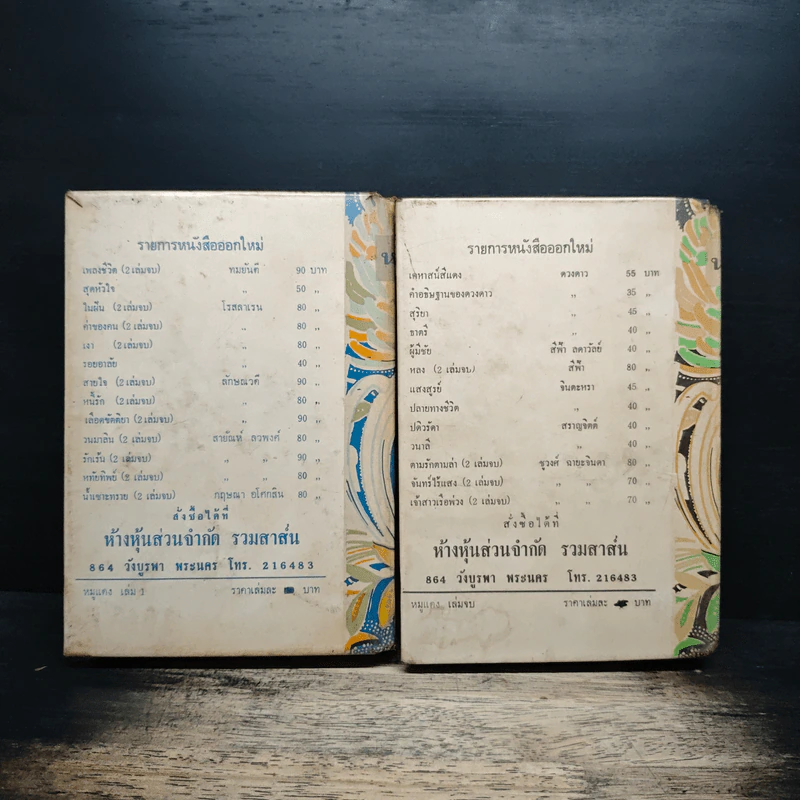 รายการหนังสือออกใหม่
เพลงชีวิต (2 เล่มจบ) ทมยันตี 90 บาท
สุดหัวใจ „ 50 „
ในฝัน (2 เล่มจบ) โรสลาเรน 80 „
ค่าของคน (2 เล่มจบ) „ 80 „
เงา (2 เล่มจบ) „ 80 „
รอยอาลัย „ 40 „
สายใจ (2 เล่มจบ) ลักษณวดี 90 „
หนี้รัก (2 เล่มจบ) „ 80 „
เลือดขัตติยา (2 เล่มจบ) „ 90 „
วนมาลิน (2 เล่มจบ) ลายัณห์ ลวพงศ์ 80 „
รักเร้น (2 เล่มจบ) „ „ 90 „
หทัยทิพย์ (2 เล่มจบ) „ „ 80 „
น้ำเซาะทราย (2 เล่มจบ) กฤษณา อโศกสิน 80 „
สั่งซื้อได้ที่
ห้างหุ้นส่วนจำกัด รวมสาส์น
864 วังบูรพา พระนคร โทร. 216483
หมูแดง เล่ม 1 ราคาเล่มละ บาท
รายการหนังสือออกใหม่
เคหาสน์สีแดง ดวงดาว 55 บาท
คำอธิษฐานของดวงดาว „ 35 „
สุริยา „ 45 „
ธาตรี „ 40 „
ผู้มีชัย สีฟ้า ลดาวัลย์ 40 „
หลง (2 เล่มจบ) สีฟ้า 80 „
แสงสูรย์ จินตะหรา 45 „
ปลายทางชีวิต „ 40 „
ปดิวรัดา สราญจิตต์ 40 „
วนาลี „ 40 „
ตามรักตามล่า (2 เล่มจบ) ชูวงศ์ ฉายะจินดา 80 „
จันทร์ไร้แสง (2 เล่มจบ) „ „ 70 „
เจ้าสาวเรือพ่วง (2 เล่มจบ) „ „ 70 „
สั่งซื้อได้ที่
ห้างหุ้นส่วนจำกัด รวมสาส์น
864 วังบูรพา พระนคร โทร. 216483
หมูแดง เล่มจบ ราคาเล่มละ บาท